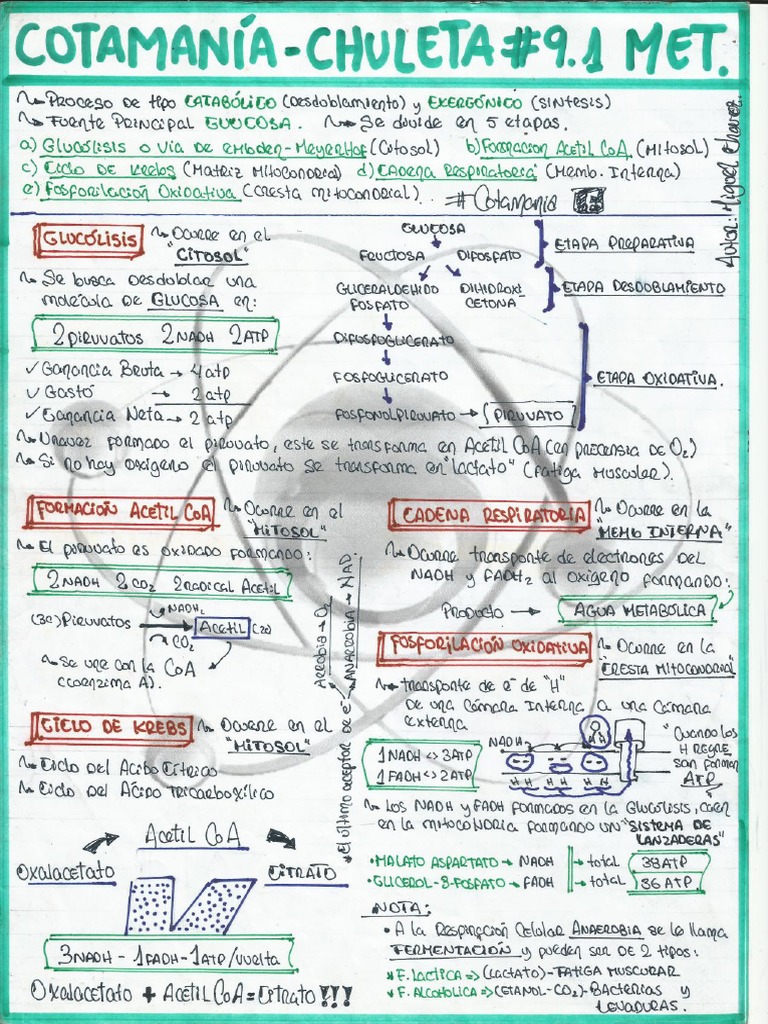 COTAMANÍA-CHULETA #9.1 MET.
Proceso de tipo CATABÓLICO (Desdoblamiento) y EXERGÓNICO (SINTESIS)
Fuente Principal GLUCOSA. Se divide en 5 etapas.
a) Glucólisis o Vía de Embden-Meyerhof (Citosol) b) Formacion Acetil CoA (Mitosol)
c) Ciclo de Krebs (Matriz Mitocondrial) d) Cadena Respiratoria (Memb. Interna)
e) Fosforilación Oxidativa (Cresta mitocondrial). #Cotamania
Autor: Miguel Chavez.
GLUCÓLISIS
Ocurre en el
"CITOSOL"
Se busca desdoblar una
molécula de GLUCOSA en:
2 piruvatos 2 NADH 2 ATP
Ganancia Bruta → 4 atp
Gasto → 2 atp
Ganancia Neta → 2 atp
GLUCOSA
FRUCTOSA DIFOSFATO
ETAPA PREPARATIVA
GLICERALDEHIDO DIHIDROXI
FOSFATO CETONA
ETAPA DESDOBLAMIENTO
DIFOSFOGLICERATO
FOSFOGLICERATO
ETAPA OXIDATIVA.
FOSFONOLPIRUVATO → PIRUVATO
Unavez formado el piruvato, este se transforma en Acetil CoA (en precensia de O₂)
Si no hay oxígeno el piruvato se transforma en "lactato" (fatiga muscular).
FORMACIÓN ACETIL CoA
Ocurre en el
"MITOSOL"
El piruvato es oxidado formando:
2 NADH 2 CO₂ 2 radical Acetil
NADH₂
(3c) Piruvatos → Acetil (2c)
CO₂
Se une con la CoA
(coenzima A).
CICLO DE KREBS
Ocurre en el
"MITOSOL"
Ciclo del Acido Cítrico
Ciclo del Ácipo Tricarboxílico
Acetil CoA
Oxalacetato CITRATO
3NADH - 1FADH - 1ATP/vuelta
Oxalacetato + Acetil CoA = Citrato!!!
El último aceptor de e⁻
Aerobia → O₂
ANAEROBIA → NAD.
CADENA RESPIRATORIA
Ocurre en la
"MEMB INTERNA"
Ocurre transporte de electrones del
NADH y FADH₂ al oxígeno formando:
Producto → AGUA METABÓLICA
FOSFORILACIÓN OXIDATIVA
Ocurre en la
"CRESTA MITOCONDRIAL"
transporte de e⁻ de "H"
De una Cámara Interna a una Cámara
externa
1 NADH <> 3ATP
1 FADH <> 2ATP
NADH
H H H H
"Cuando los
H Regre.
san forman
ATP
Los NADH y FADH formados en la Glucólisis, caen
en la mitocondria formando un "SISTEMA DE
LANZADERAS"
• MALATO ASPARTATO → NADH → total 38 ATP
• GLICEROL-3-FOSFATO → FADH → total 36 ATP.
NOTA:
• A la Respiración Celular ANAEROBIA se le llama
FERMENTACIÓN y pueden ser de 2 tipos:
F. Lactica => (lactato) - FATIGA MUSCURAR
F. Alcoholica => (ETANOL-CO₂) - Bacterias y
Levaduras.